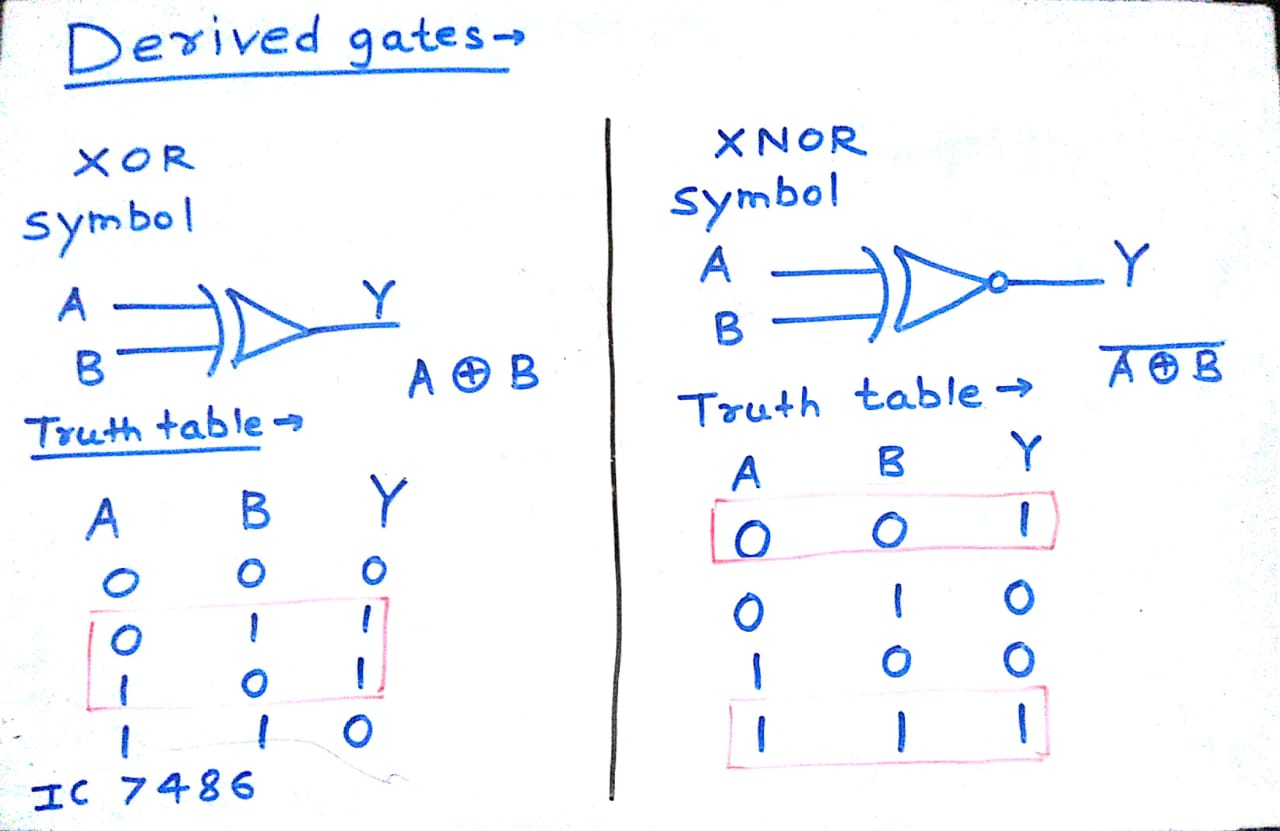 Derived gates→
XOR
symbol
A
Y
B
A ⊕ B
Truth table→
A B Y
0 0 0
0 1 1
1 0 1
1 1 0
IC 7486
XNOR
symbol
A
Y
B
A̅ ̅⊕̅ ̅B̅
Truth table→
A B Y
0 0 1
0 1 0
1 0 0
1 1 1